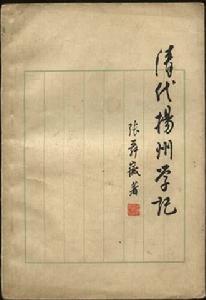 清代揚州学记
张舜徽著